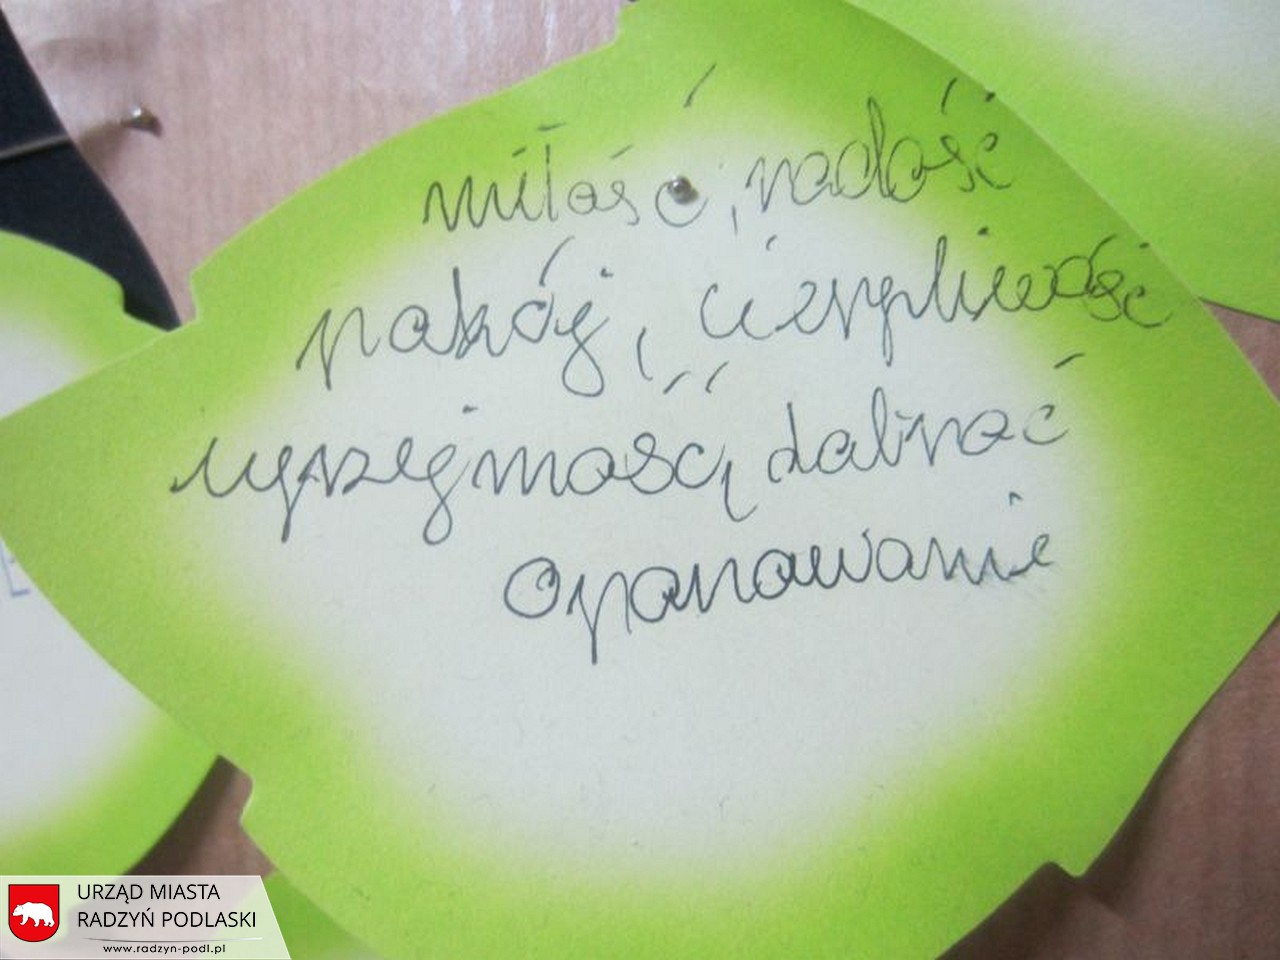 miłość, radość
pokój, cierpliwość
uprzejmość, dobroć
opanowanie
E
URZĄD MIASTA
RADZYŃ PODLASKI
www.radzyn-podl.pl